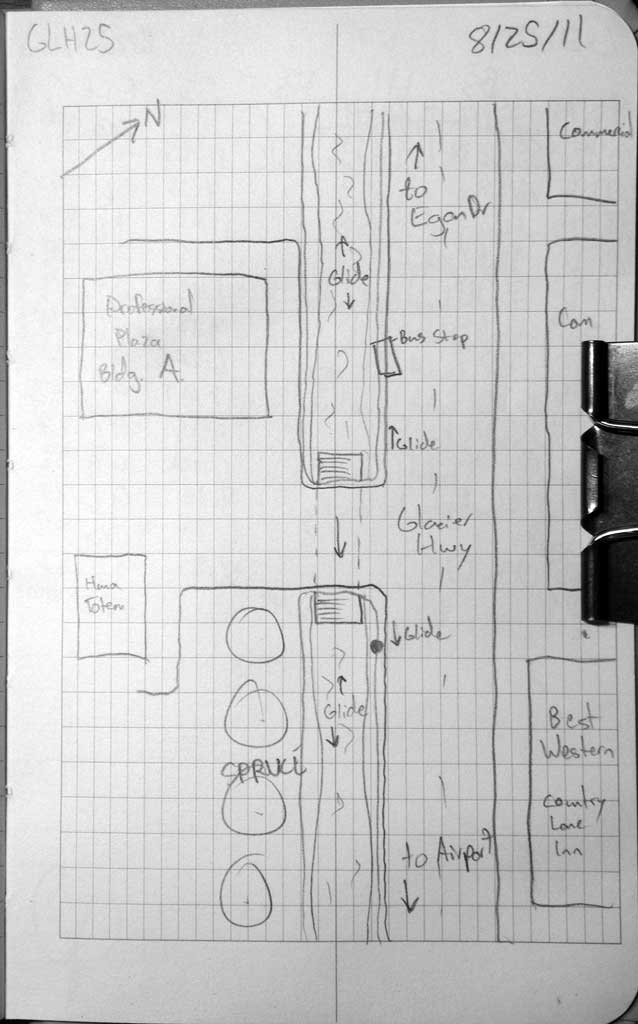 GLH25
8/25/11
N
Commercial
to
Egan Dr
Glide
Professional
Plaza
Bldg. A
Bus Stop
Com
Glide
Glacier
Hwy
Totem
Glide
Glide
SPRUCE
Best
Western
Country
Lane
Inn
to Airport